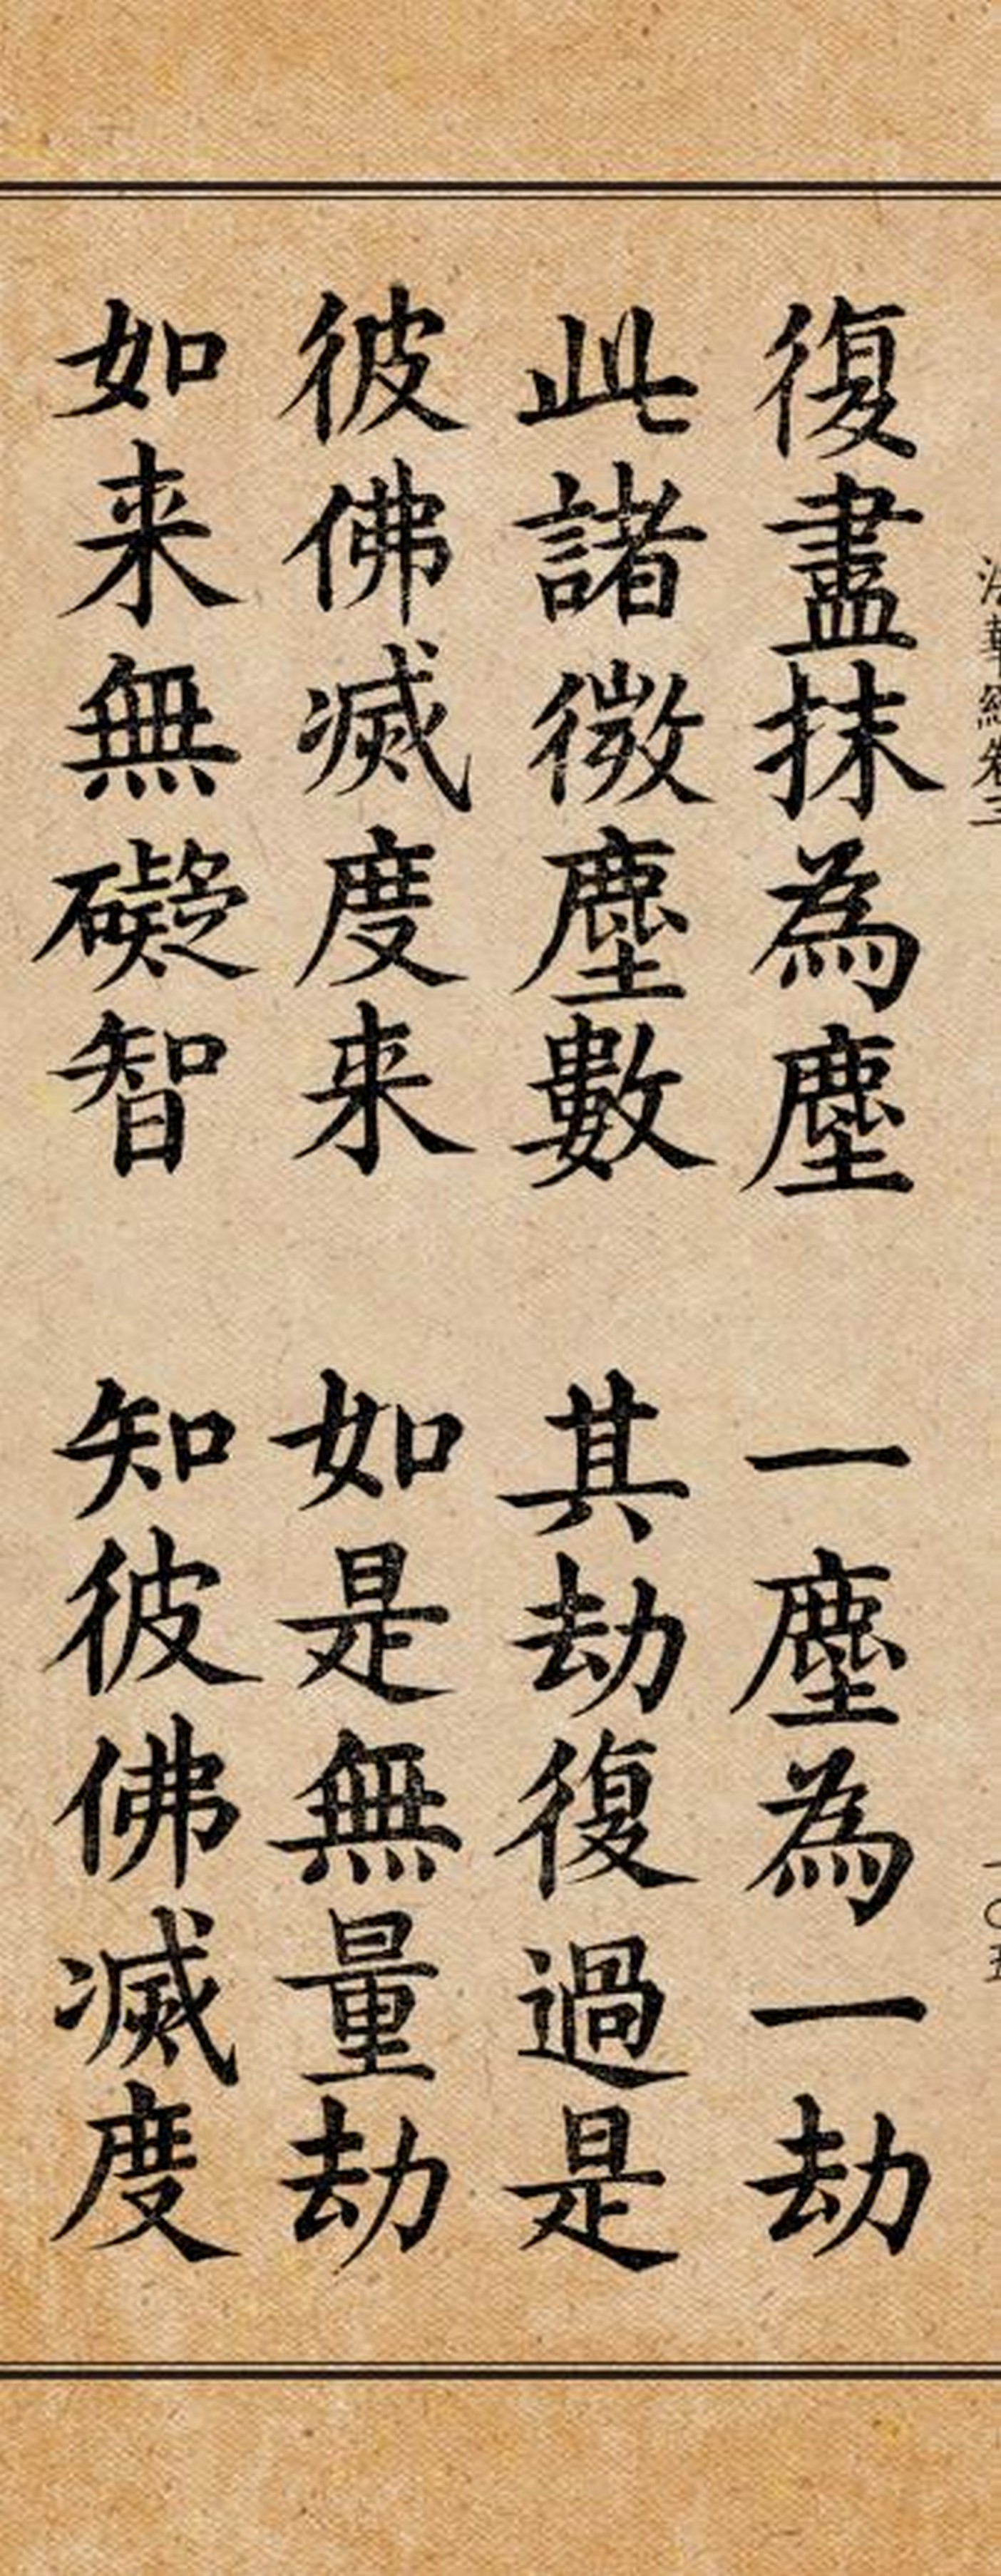 法華經卷三 一〇五
復盡抹為塵 一塵為一劫
此諸微塵數 其劫復過是
彼佛滅度来 如是無量劫
如来無礙智 知彼佛滅度